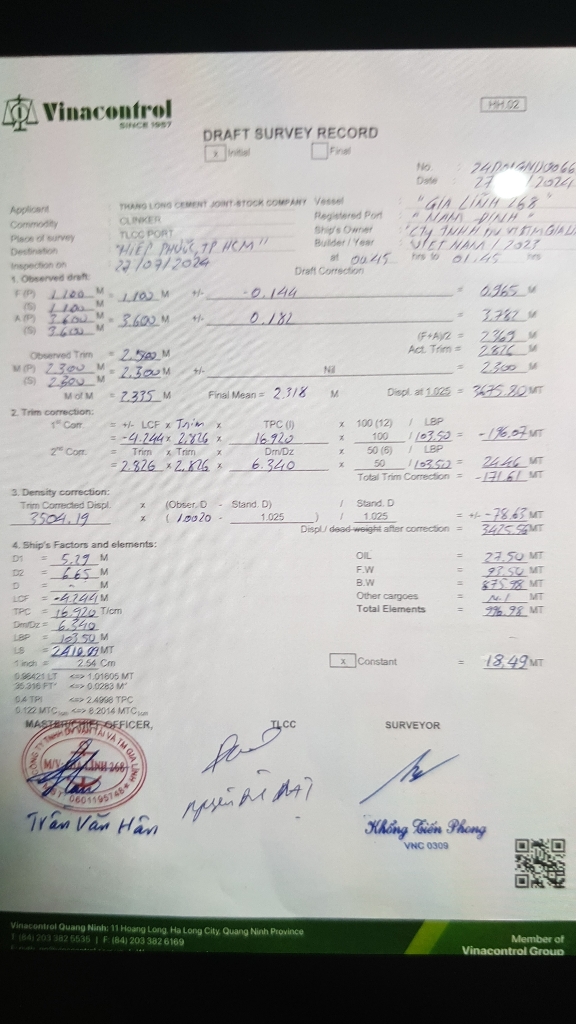 Vinacontrol
SINCE 1957
HH.02
DRAFT SURVEY RECORD
x Initial Final
No.
Date 27 /2024
Applicant THANG LONG CEMENT JOINT-STOCK COMPANY Vessel "GIA LINH 268"
Commodity CLINKER Registered Port "NAM ĐỊNH"
Place of survey TLCC PORT Ship's Owner
Destination "HIỆP PHƯỚC, TP HCM" Builder / Year VIET NAM / 2023
Inspection on 27/07/2024 at 00.45 hrs to 01.45 hrs
1. Observed draft: Draft Correction
F (P) 1.100 M = 1.100 M +/- -0.144 = 0.965 M
(S) 1.100 M
A (P) 3.600 M = 3.600 M +/- 0.182 = 3.782 M
(S) 3.600 M
(F+A)/2 = 2.369 M
Observed Trim = 2.500 M Act. Trim = 2.826 M
M (P) 2.300 M = 2.300 M +/- Nil = 2.300 M
(S) 2.300 M
M of M = 2.335 M Final Mean = 2.318 M Displ. at 1.025 = 3675.80 MT
2. Trim correction:
1st Corr. = +/- LCF x Trim x TPC (I) x 100 (12) / LBP
= -4.244 x 2.826 x 16.920 x 100 / 103.50 = -196.07 MT
2nd Corr. = Trim x Trim x Dm/Dz x 50 (6) / LBP
= 2.826 x 2.826 x 6.340 x 50 / 103.50 = 24.46 MT
Total Trim Correction = -171.61 MT
3. Density correction:
Trim Corrected Displ. x (Obser. D - Stand. D) / Stand. D
3504.19 x ( 1.0020 - 1.025 ) / 1.025 = +/- -78.63 MT
Displ./ dead weight after correction = 3425.56 MT
4. Ship's Factors and elements:
D1 = 5.29 M OIL = 27.50 MT
D2 = 6.65 M F.W = 93.50 MT
D = - M B.W = 875.98 MT
LCF = -4.244 M Other cargoes = Nil MT
TPC = 16.920 T/cm Total Elements = 996.98 MT
Dm/Dz = 6.340
LBP = 103.50 M
LS = 2410.09 MT
1 inch = 2.54 Cm x Constant = 18.49 MT
0.98421 LT <=> 1.01605 MT
35.316 FT³ <=> 0.0283 M³
0.4 TPI <=> 2.4998 TPC
0.122 MTC <=> 8.2014 MTC
MASTER/CHIEF OFFICER, TLCC SURVEYOR
CÔNG TY TNHH DV VẬN TẢI VÀ TM GIA LINH
M/V: GIA LINH 268
0601195748
Trần Văn Hân
Khổng Tiến Phong
VNC 0309
Vinacontrol Quang Ninh: 11 Hoang Long, Ha Long City, Quang Ninh Province
T (84) 203 382 5535 | F. (84) 203 382 6169
Member of
Vinacontrol Group